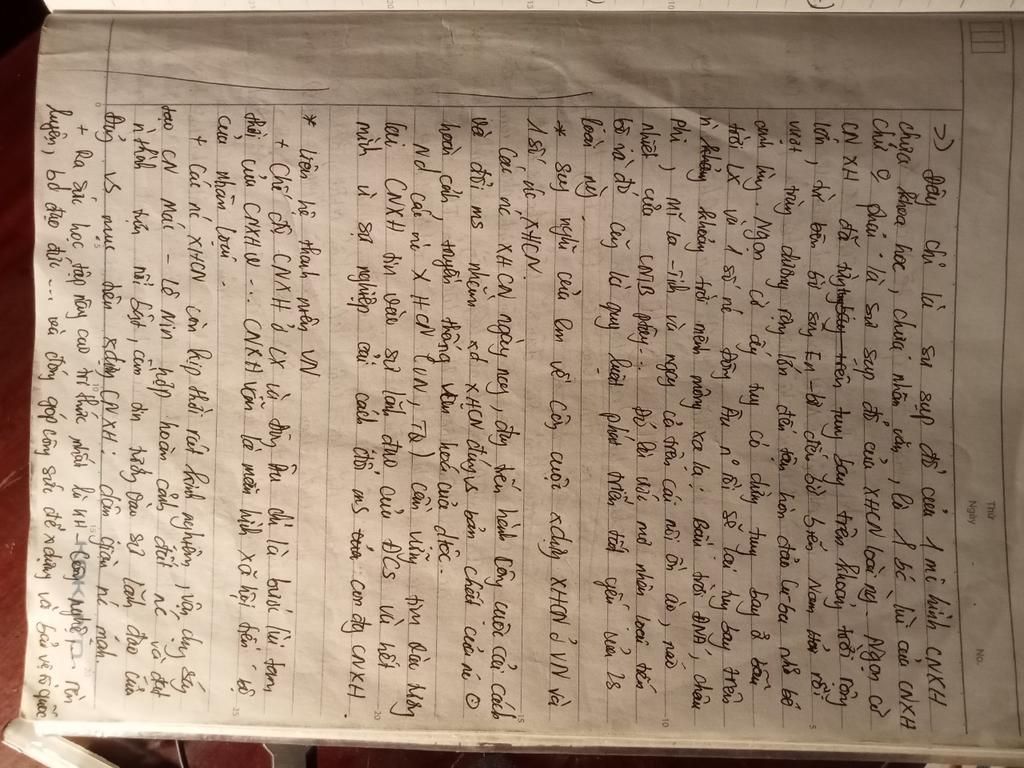 Thứ
Ngày
No.
=> Đây chỉ là sự sụp đổ của 1 mô hình CNXH
chưa khoa học, chưa nhân văn, là 1 bc lùi của CNXH
chứ o phải là sự sụp đổ của XHCN loài ng. Ngọn cờ
CNXH đã từng tung bay trên khoảng trời rộng
lớn, từ bên bờ sông En-bơ đến bờ biển Nam Hải rồi
vượt trùng dương rộng lớn đến tận hòn đảo Cuba nhỏ bé
anh hùng. Ngọn cờ ấy tuy có dừng tung bay ở bầu
trời LX và 1 số nc Đông Âu n rồi sẽ lại tung bay trên
n khoảng trời mênh mông xa lạ: Bầu trời ĐNÁ, châu
Phi, Mĩ la-tinh và ngay cả trên cái nôi ồn ào, náo
nhiệt của CNTB phương... Đó là ước mơ nhân loại tiến
bộ và đó cũng là quy luật phát triển tất yếu của LS
loài ng.
* Suy nghĩ của em về công cuộc xdựng XHCN ở VN và
1 số nc XHCN.
Các nc XHCN ngày nay, đang tiến hành công cuộc cải cách
và đổi ms nhằm xd XHCN đúng vs bản chất của nó
hoàn cảnh, truyền thống văn hoá của dtộc.
Nd các nc XHCN (VN, TQ) cần vững tin vào tương
lai CNXH tin vào sự lãnh đạo của ĐCS và hết
mình vì sự nghiệp cải cách đổi ms con đg CNXH.
* Liên hệ thanh niên VN
+ Chế độ CNXH ở LX và đông Âu chỉ là bước lùi tạm
thời của CNXH... CNXH vẫn là mô hình xã hội tiến bộ
của nhân loại.
+ Các nc XHCN còn kịp thời rút kinh nghiệm, vận dụng sáng
tạo CN Mác - Lê Nin hợp hoàn cảnh đất nc và đạt
n thành tựu nổi bật, cần tin tưởng vào sự lãnh đạo của
đảng vs mục tiêu xdựng CNXH: dân giàu nc mạnh.
+ Ra sức học tập nâng cao tri thức nhất là KH - Công nghệ, rèn
luyện, bd đạo đức ... và đóng góp công sức để xdựng và bảo vệ tổ quốc